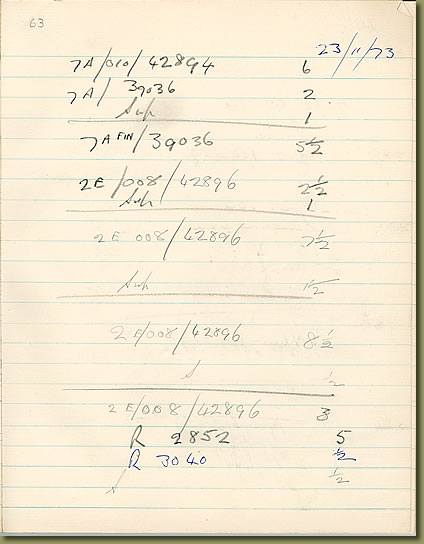 63
23/11/73
7A/010/42894 6
7A/ 39036 2
Sup 1
7A FIN/39036 5½
2E/008/42896 2½
Sup 1
2E 008/42896 7½
Sup ½
2E/008/42896 8½
S ½
2E/008/42896 3
R 2852 5
R 3040 ½
S ½